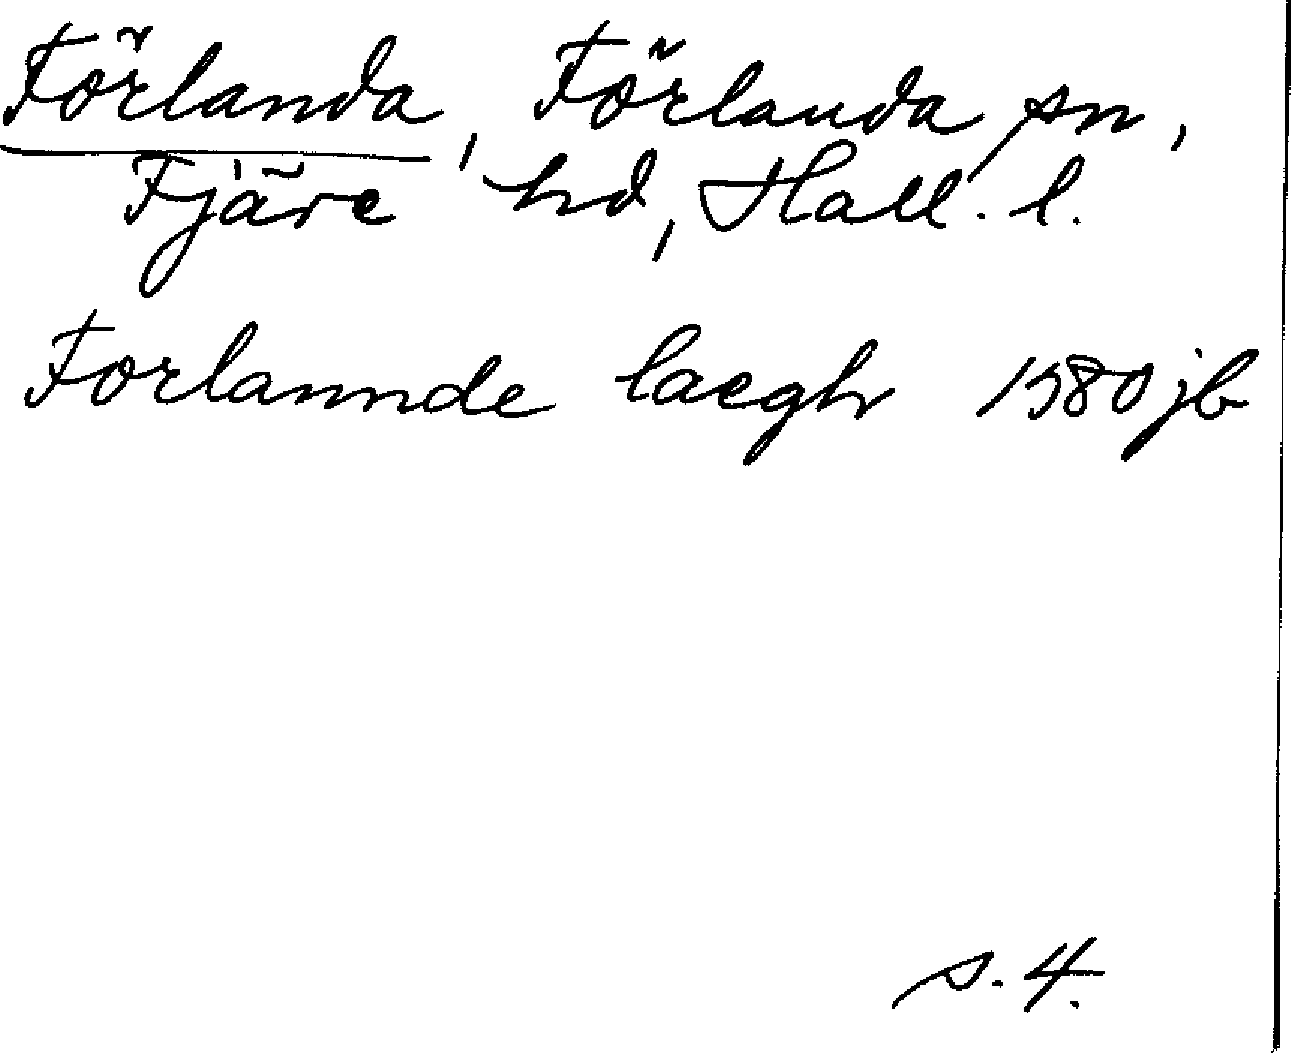 Förlanda, Förlanda sn,
Fjäre hd, Hall. l.
Forlannde laegh 1580 jb
s. 4.